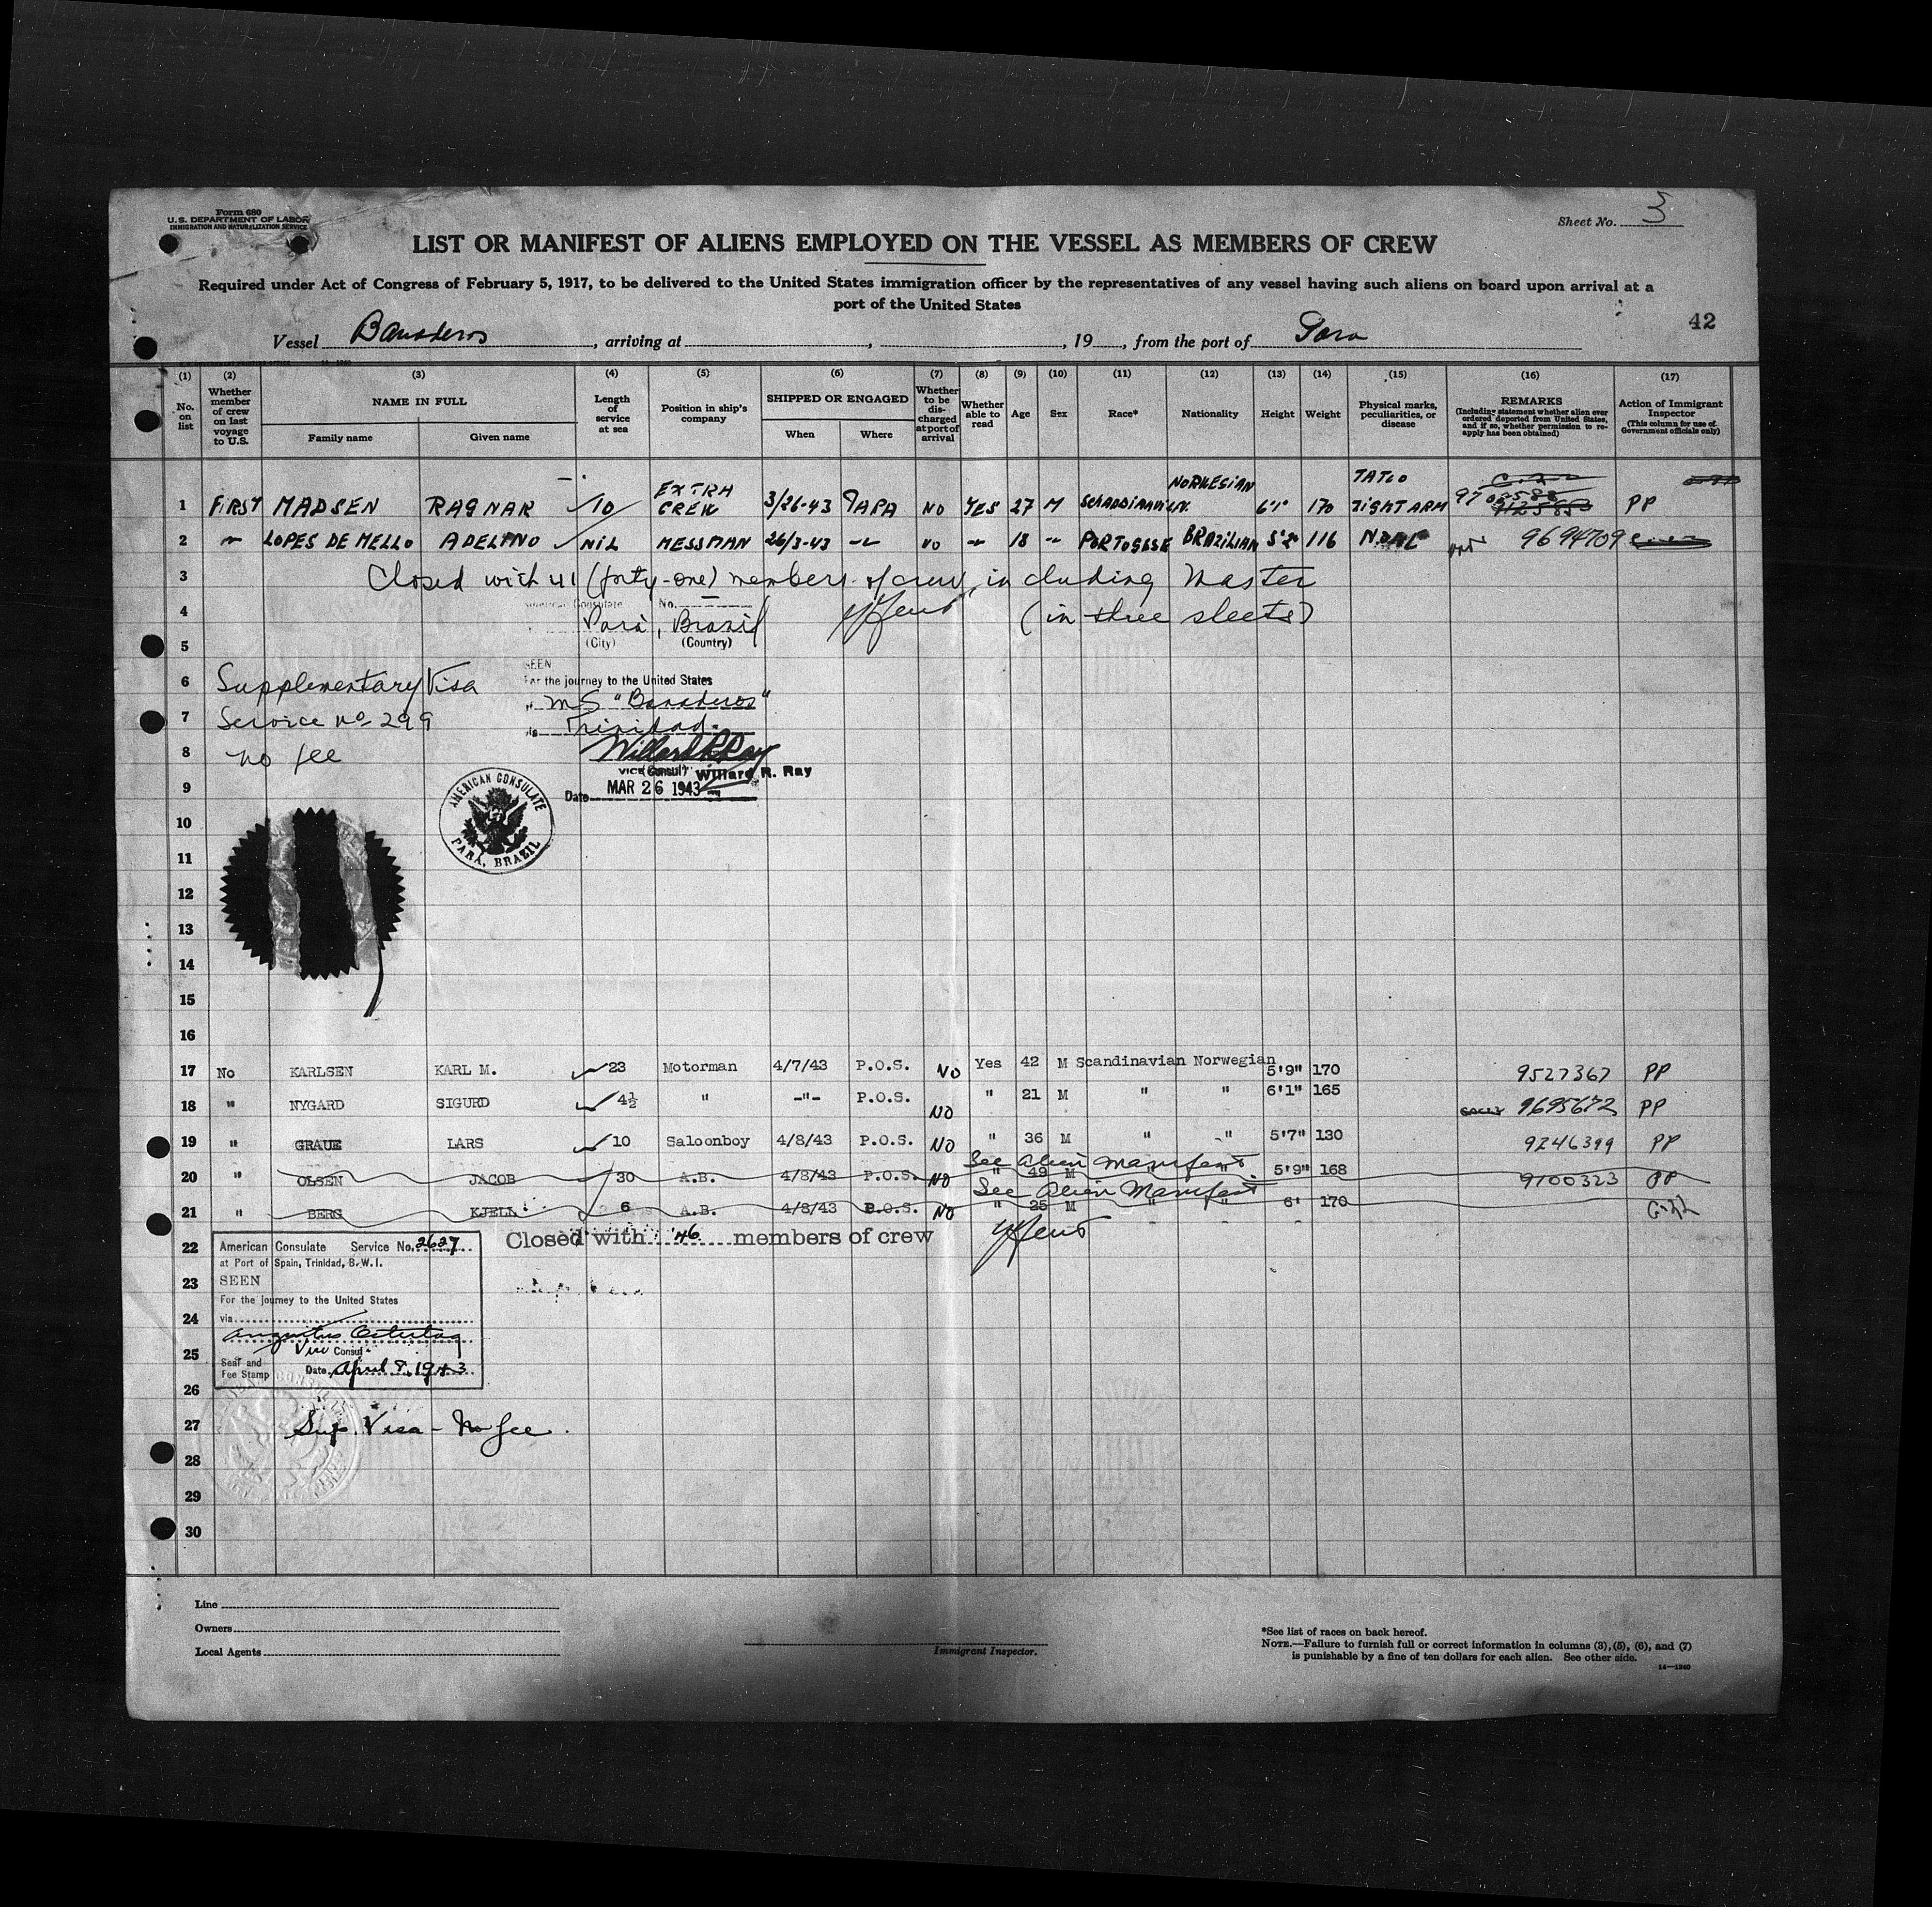 Form 680
U.S. DEPARTMENT OF LABOR
IMMIGRATION AND NATURALIZATION SERVICE
Sheet No. 3
LIST OR MANIFEST OF ALIENS EMPLOYED ON THE VESSEL AS MEMBERS OF CREW
Required under Act of Congress of February 5, 1917, to be delivered to the United States immigration officer by the representatives of any vessel having such aliens on board upon arrival at a
port of the United States
42
Vessel Banaderos, arriving at , , 19 , from the port of Para
(1) (2) (3) (4) (5) (6) (7) (8) (9) (10) (11) (12) (13) (14) (15) (16) (17)
No. on list
Whether member of crew on last voyage to U.S.
NAME IN FULL
Family name
Given name
Length of service at sea
Position in ship's company
SHIPPED OR ENGAGED
When
Where
Whether to be discharged at port of arrival
Whether able to read
Age
Sex
Race*
Nationality
Height
Weight
Physical marks, peculiarities, or disease
REMARKS
(Including statement whether alien ever ordered deported from United States, and if so, whether permission to reapply has been obtained)
Action of Immigrant Inspector
(This column for use of Government officials only)
1 FIRST MADSEN RAGNAR 10 EXTRA CREW 3/26-43 PARA NO YES 27 M NORWEGIAN 6'1" 170 TATCO RIGHT ARM PP
2 " LOPES DE MELLO ADELINO NIL MESSMAN 26/3-43 -"- NO -"- 18 -"- PORTOGESE BRAZILIAN 5'2" 116 9694709
3 Closed with 41 (forty-one) members of crew, including Master
4 (in three sheets)
American Consulate No.
Para, Brazil
(City) (Country)
5
SEEN
For the journey to the United States
6 Supplementary Visa
MS "Banaderos"
7 Service No. 299
Trinidad.
8 no fee
Willard R. Ray
VICE Consul Willard R. Ray
9
Date MAR 26 1943
AMERICAN CONSULATE
PARÁ, BRAZIL
10
11
12
13
14
15
16
17 No KARLSEN KARL M. 23 Motorman 4/7/43 P.O.S. NO Yes 42 M Scandinavian Norwegian 5'9" 170 9527367 PP
18 " NYGARD SIGURD 4½ " -"- P.O.S. NO " 21 M " " 6'1" 165 9695672 PP
19 " GRAUE LARS 10 Saloonboy 4/8/43 P.O.S. NO " 36 M " " 5'7" 130 9246399 PP
See Alien Manifest
20 " OLSEN JACOB 30 A.B. 4/8/43 P.O.S. NO " 49 M " " 5'9" 168 9100323 PP
See Alien Manifest
21 " BERG KJELL 6 A.B. 4/8/43 P.O.S. NO " 25 M " " 6' 170
22 Closed with 46 members of crew
American Consulate Service No. 2627
at Port of Spain, Trinidad, B.W.I.
23 SEEN
For the journey to the United States
24 via
25 Vice Consul
Seal and
Fee Stamp
Date April 8, 1943
26
27 Sup. Visa - No fee.
28
29
30
Line
Owners
Local Agents
Immigrant Inspector.
*See list of races on back hereof.
NOTE.—Failure to furnish full or correct information in columns (3), (5), (6), and (7)
is punishable by a fine of ten dollars for each alien. See other side.
14—1240